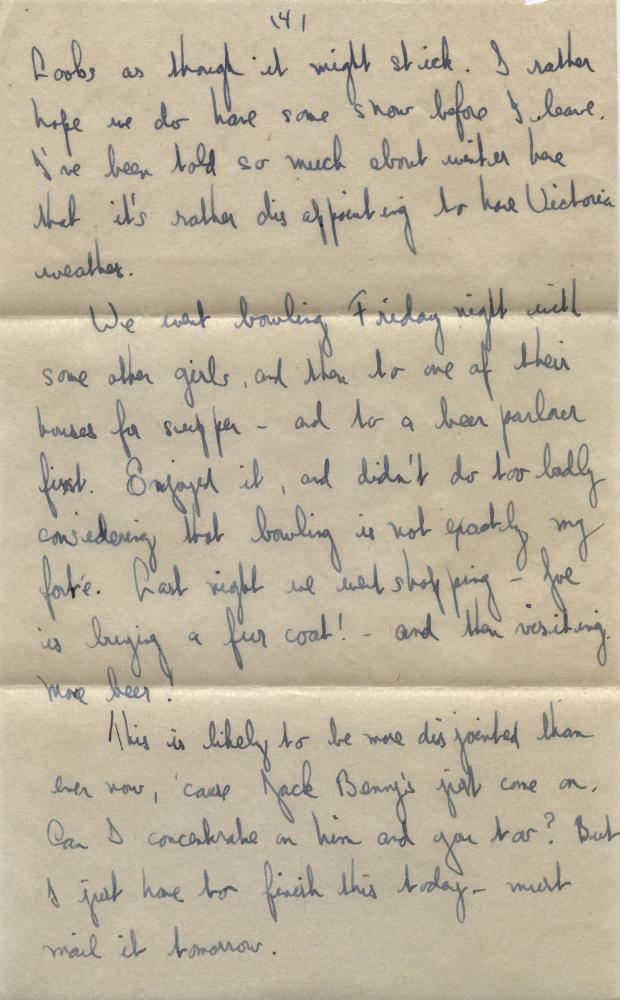 (4)
Looks as though it might stick. I rather
hope we do have some snow before I leave.
I've been told so much about winter here
that it's rather disappointing to have Victoria
weather.
We went bowling Friday night with
some other girls, and then to one of their
houses for supper - and to a beer parlour
first. Enjoyed it, and didn't do too badly
considering that bowling is not exactly my
forte. Last night we went shopping -
is buying a fur coat! - and then visiting.
More beer!
This is likely to be more disjointed than
ever now, 'cause Jack Benny's just come on.
Can I concentrate on him and you too? But
I just have to finish this today - must
mail it tomorrow.